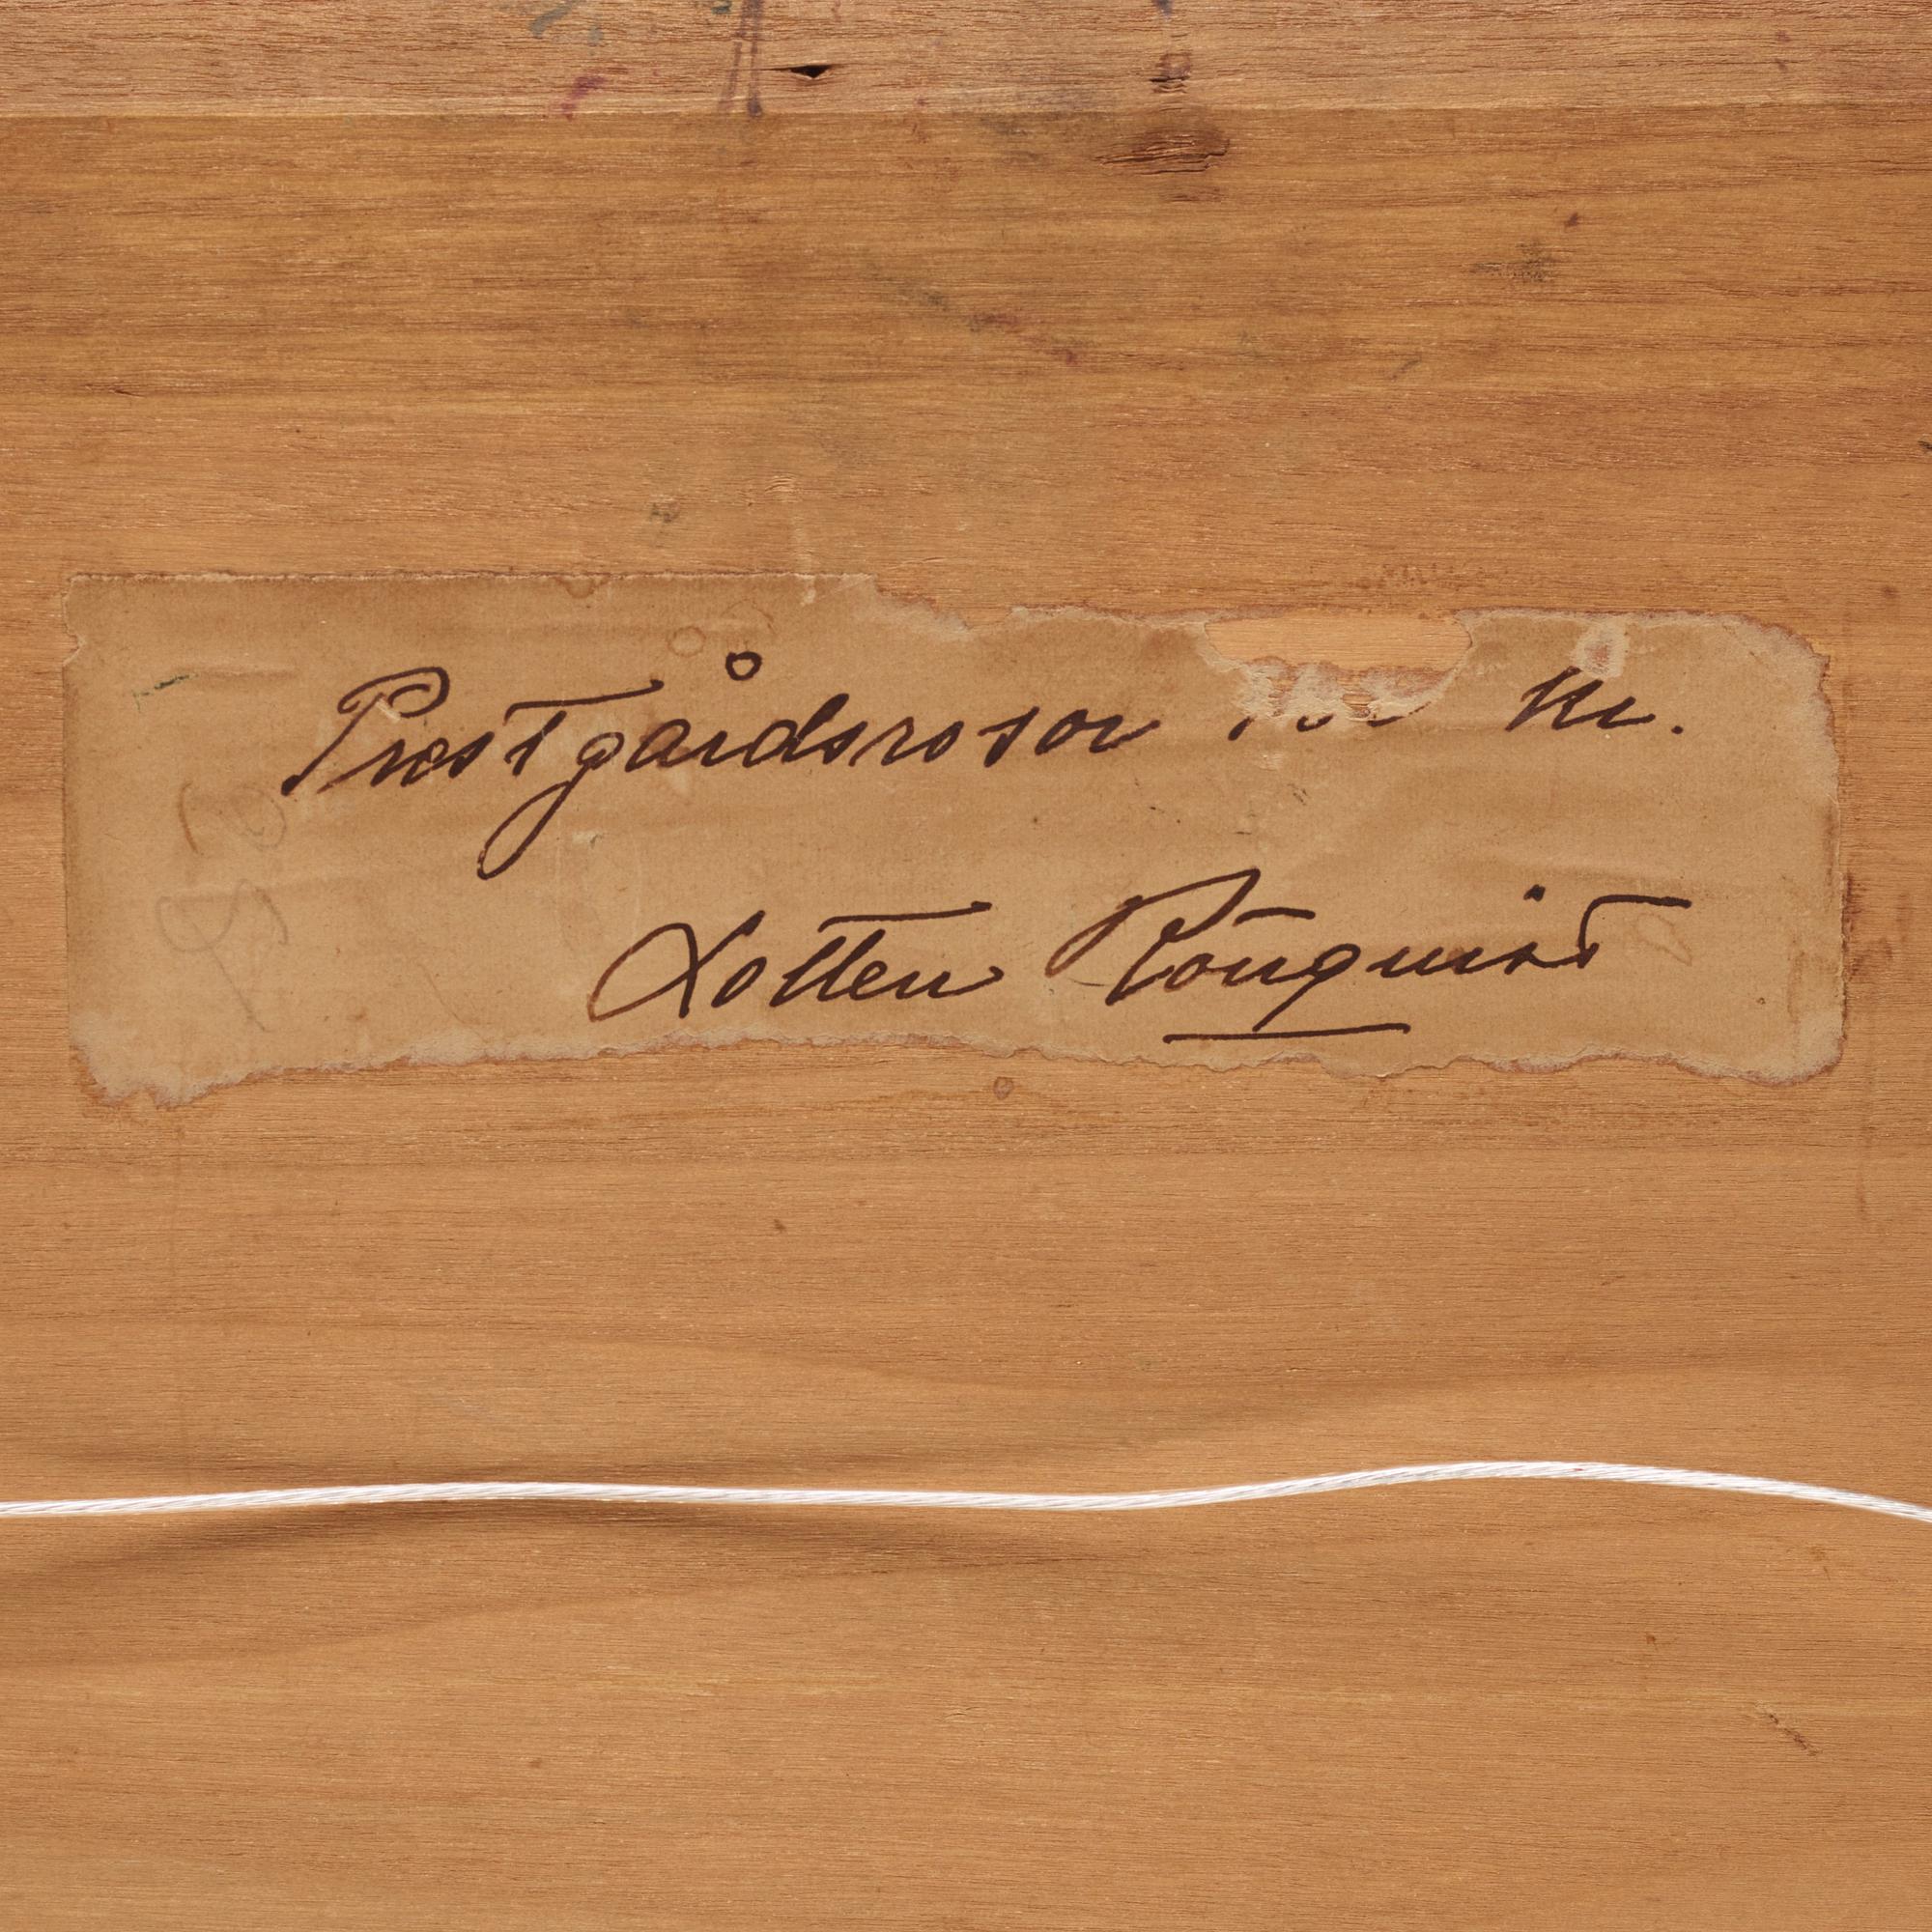 Prestgårdsrosor kr.
Lotten Rönquist